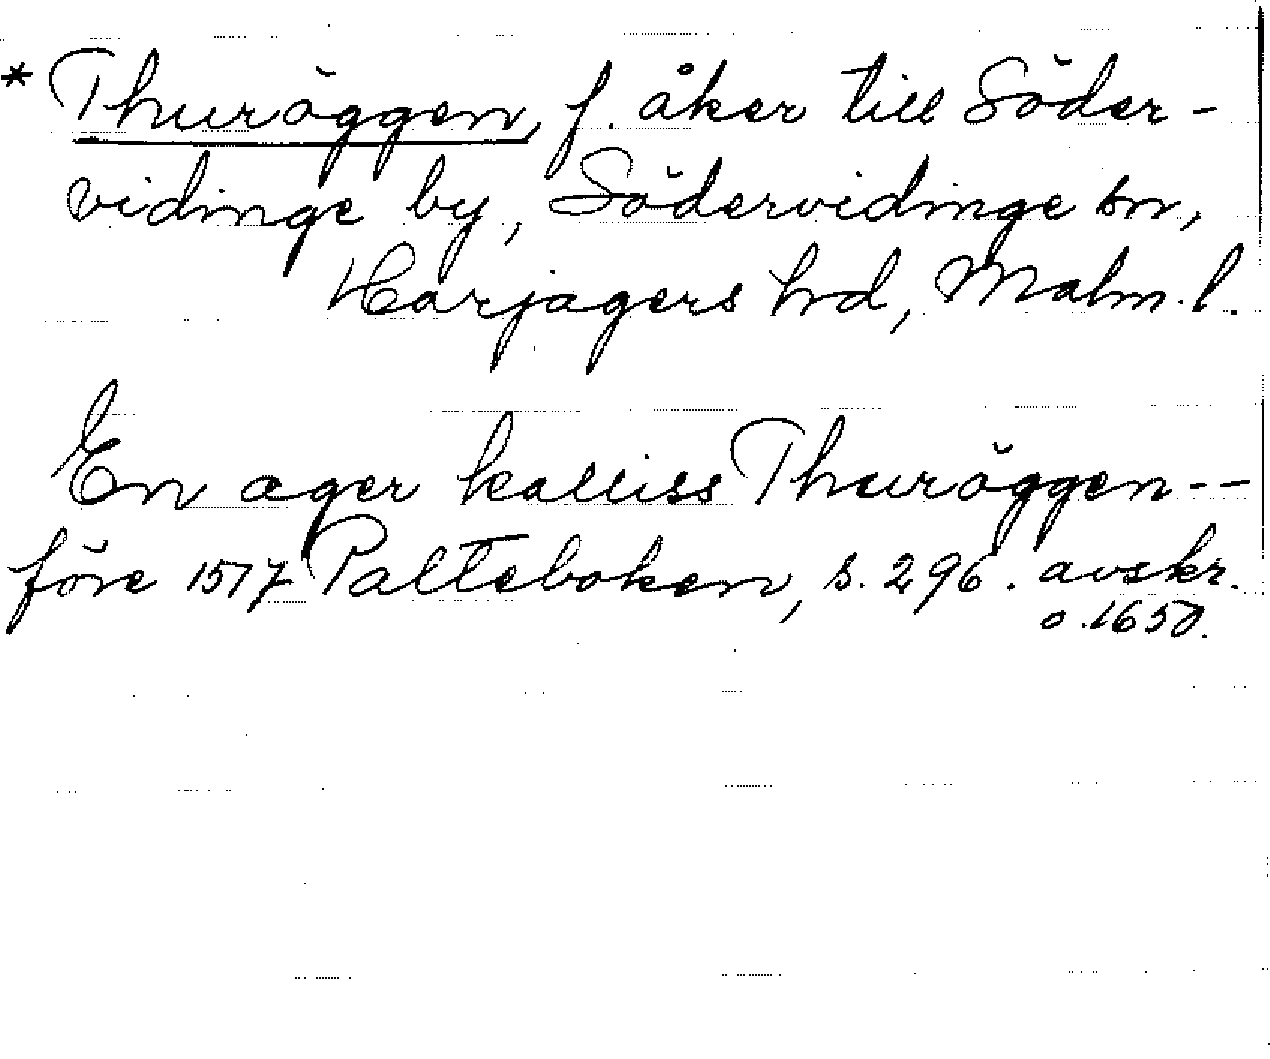 * Thuröggen, f. åker till Söder-
vidinge by, Södervidinge sn,
Harjagers hd, Malm. l.
En ager kalliss Thuröggen --
före 1517 Palteboken, s. 296. avskr.
o. 1650.